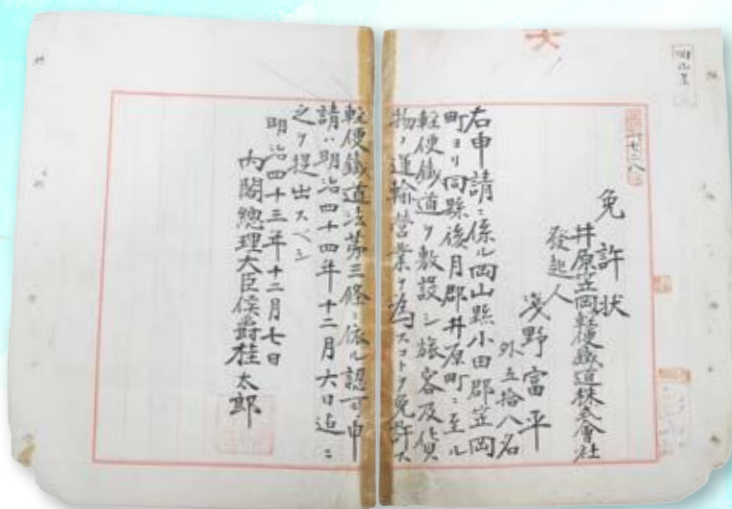 免許状
井原笠岡軽便鐵道株式會社
發起人
淺野富平
外五拾八名
右申請ニ係ル岡山縣小田郡笠岡
町ヨリ同縣後月郡井原町ニ至ル
軽便鐵道ヲ敷設シ旅客及貨
物ノ運輸営業ヲ為スコトヲ免許ス
軽便鐵道法第三條ニ依ル認可申
請ハ明治四十四年十二月六日迄ニ
之ヲ提出スヘシ
明治四十三年十二月七日
内閣總理大臣侯爵桂太郎